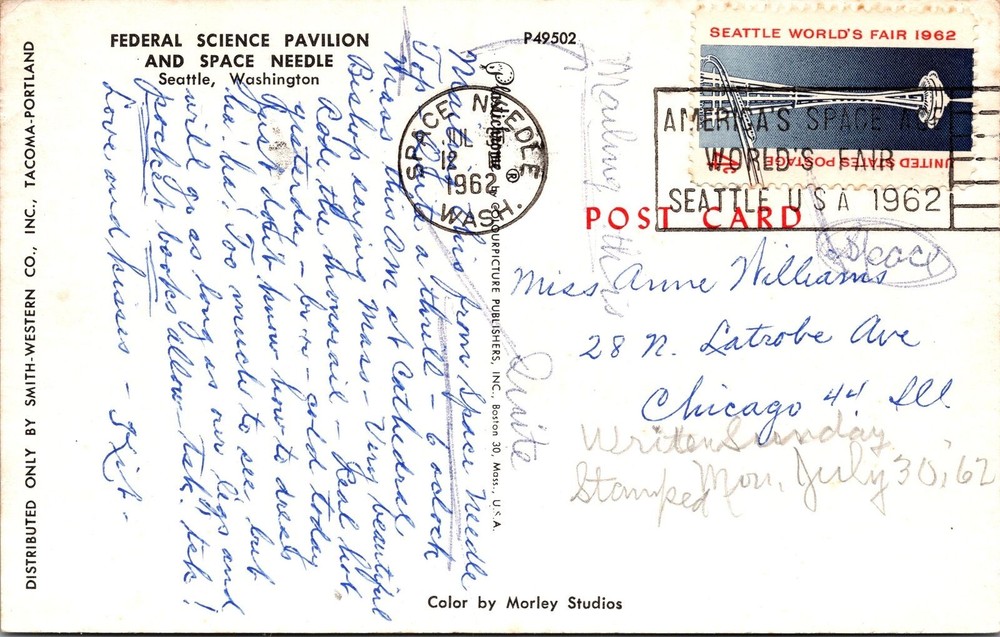 FEDERAL SCIENCE PAVILION
AND SPACE NEEDLE
Seattle, Washington
P49502
DISTRIBUTED ONLY BY SMITH-WESTERN CO., INC., TACOMA-PORTLAND
Mailing this from Space Needle
Top. Quite a thrill - 6 oclock
Mass this AM at Cathedral
Bishop saying Mass - Very beautiful
Rode the monorail - Real hot
yesterday - brr - cold today
Just don't know how to dress
ha! ha! Too much to see but
will go as long as our legs and
pocket books allow - tsk. tsk!
Love and kisses -
Plastichrome ® by COLOURPICTURE PUBLISHERS, INC., Boston 30, Mass., U.S.A.
Mailing this
Quite
SPACE NEEDLE
JUL
12
1962
WASH.
SEATTLE WORLD'S FAIR 1962
4¢ UNITED STATES POSTAGE
AMERICA'S SPACE AGE
WORLD'S FAIR
SEATTLE USA 1962
POST CARD
Miss Anne Williams
28 N. Latrobe Ave
Chicago 44 Ill
Writen Sunday
Stamped Mon, July 30, '62
Color by Morley Studios